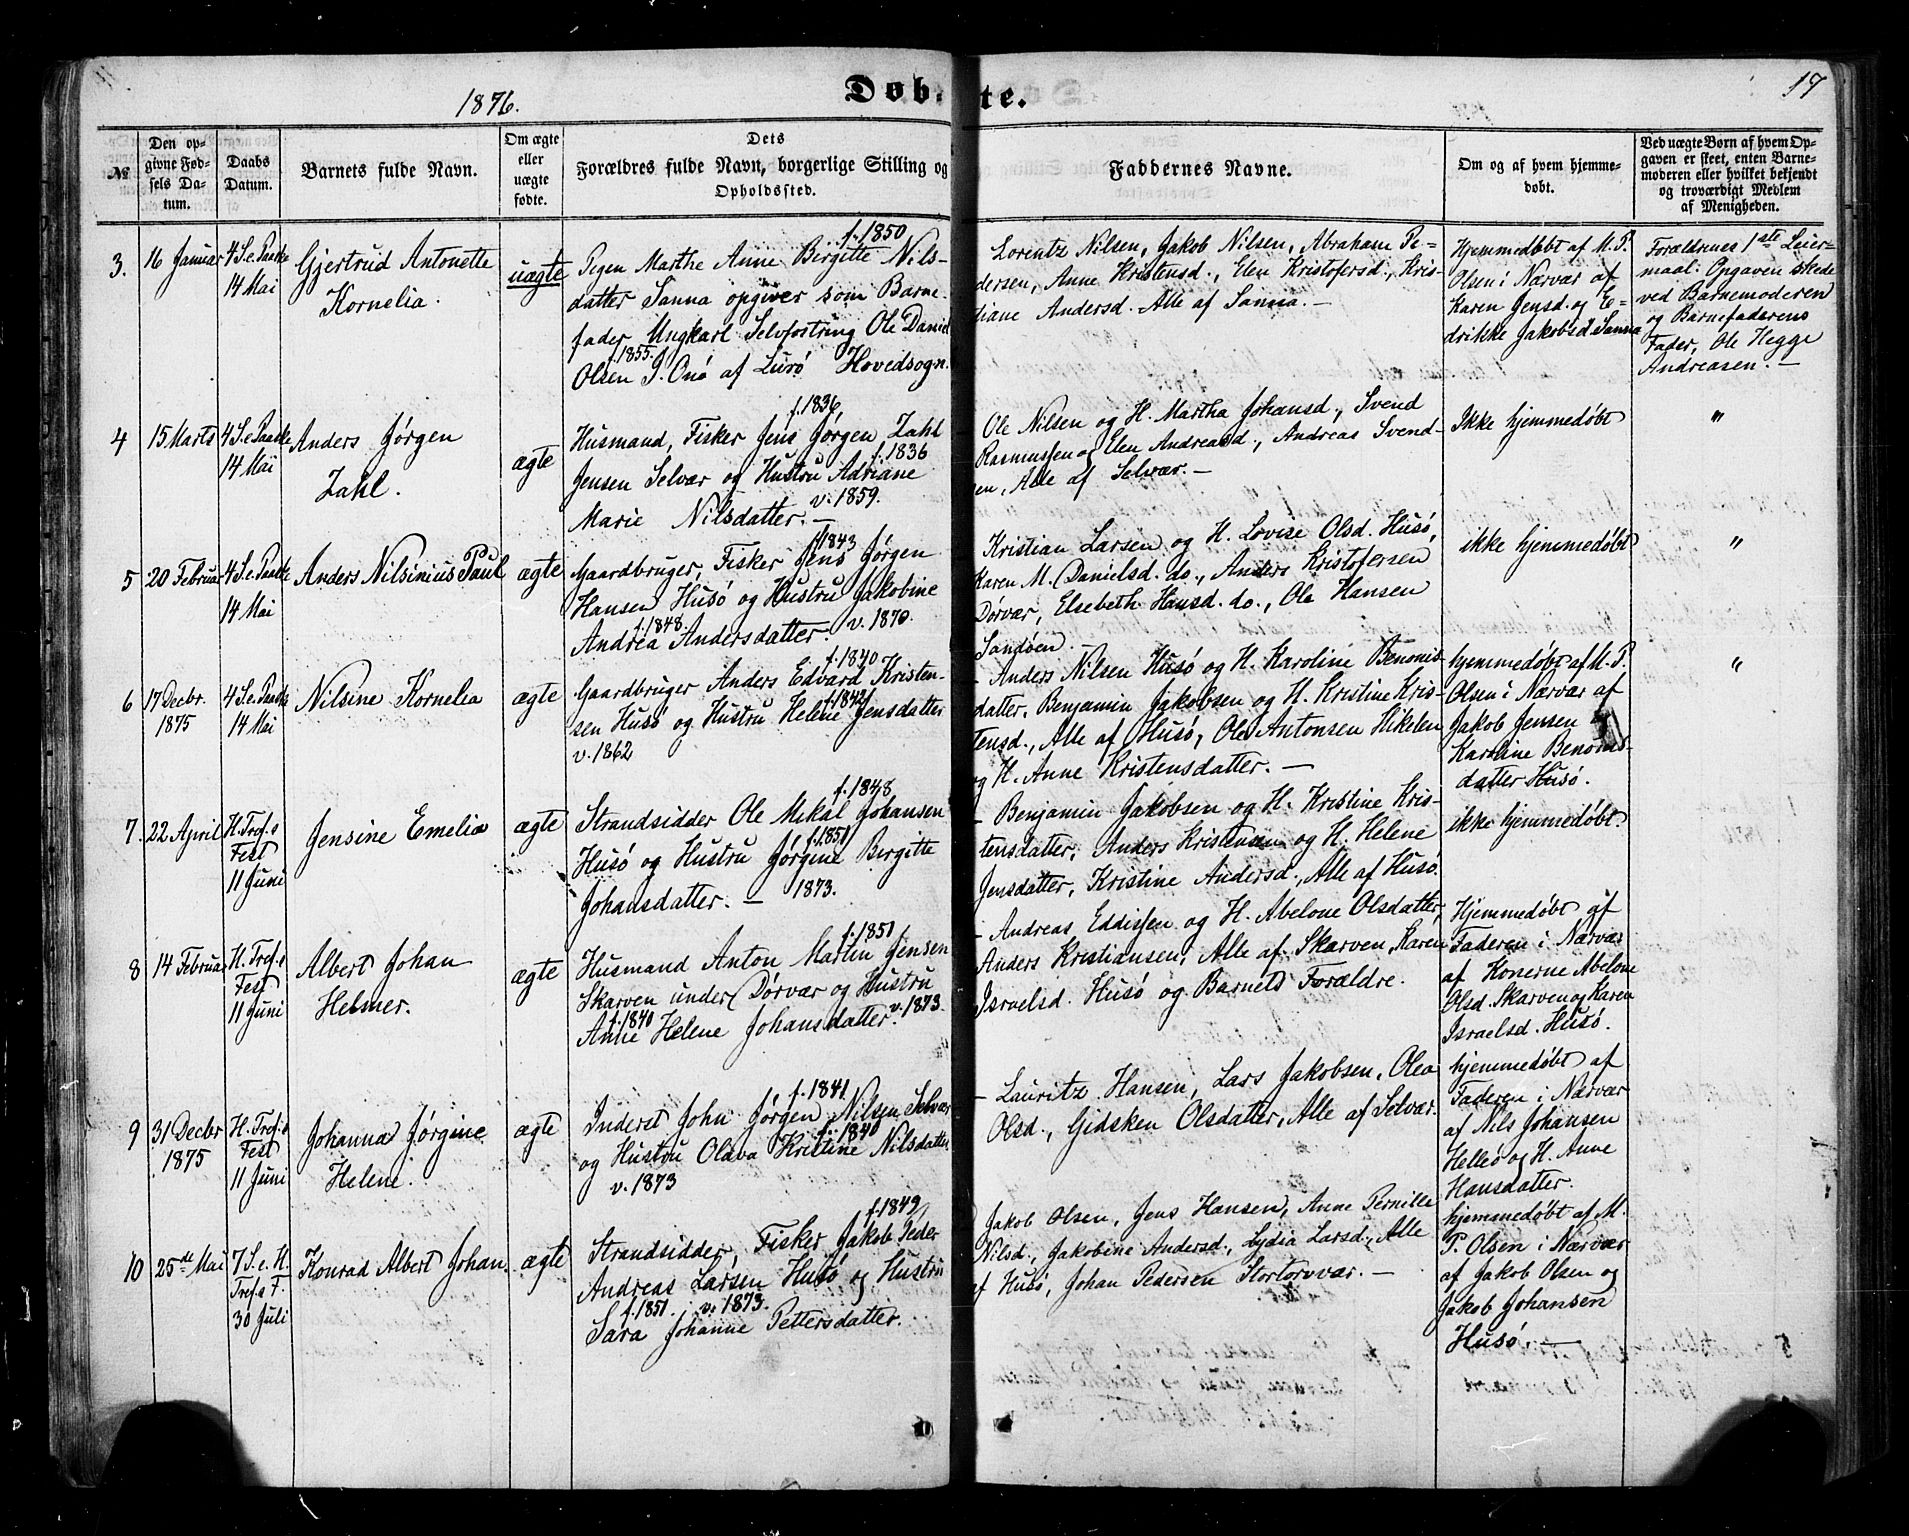 1876.
Døbte.
17
№
Den opgivne Fødsels Datum.
Daabs Datum.
Barnets fulde Navn.
Om ægte eller uægte fødte.
Dets Forældres fulde Navn, borgerlige Stilling og Opholdssted.
Faddernes Navne.
Om og af hvem hjemmedøbt.
Ved uægte Børn af hvem Opgaven er skeet, enten Barnemoderen eller hvilket bekjendt og troværdigt Medlem af Menigheden.
3. 16 Januar
4 S. e. Paaske
14 Mai
Gjertrud Antonette
Kornelia.
uægte
f. 1850
Pigen Marthe Anne Birgitte Nils-
datter Sanna opgiver som Barne-
fader Ungkarl Selvfostring Ole Daniel
f. 1855.
Olsen S. Onø af Lurø Hovedsogn.
Lorentz Nilsen, Jakob Nilsen, Abraham Pe-
dersen, Anne Kristensd., Elen Kristofersd., Kris-
diane Andersd. Alle af Sanna. —
Hjemmedøbt af M. P.
Olsen i Nærvær af
Karen Jensd. og E-
drikke Jakobsd. Sanna
Forældrenes 1ste Leier-
maal. Opgaven skede
ved Barnemoderen
og Barnefaderens
Fader, Ole Hegge
Andreasen. —
4 15 Marts
4 S. e. Paaske
14 Mai
Anders Jørgen
Zahl.
ægte
f. 1836
Husmand, Fisker Jens Jørgen Zahl
f. 1836
Jensen Selvær og Hustru Adriane
v. 1859.
Marie Nilsdatter. —
Ole Nilsen og H. Martha Johansd., Svend
Rasmussen og Elen Andreasd., Andreas Svend-
sen, Alle af Selvær. —
Ikke hjemmedøbt
"
5 20 Februar
4 S. e. Paaske
14 Mai
Anders Nilsinius Paul
ægte
f. 1843
Gaardbruger, Fisker Jens Jørgen
Hansen Husø og Hustru Jakobine
f. 1848. v. 1870.
Andrea Andersdatter.
Kristian Larsen og H. Lovise Olsd. Husø,
Karen M. Danielsd. do., Anders Kristofersen
Dørvær, Elsebeth Hansd. do., Ole Hansen
Sandøen. —
ikke hjemmedøbt
"
6 17 Decbr.
1875
4 S. e. Paaske
14 Mai
Nilsine Kornelia
ægte
f. 1840
Gaardbruger Anders Edvard Kristen-
f. 1842
sen Husø og Hustru Helene Jensdatter
v. 1862
- Anders Nilsen Husø og H. Karoline Benonis-
datter, Benjamin Jakobsen og H. Kristine Kris-
tensd., Alle af Husø, Ole Antonsen Hikelen
og H. Anne Kristensdatter. —
hjemmedøbt af M. P.
Olsen i Nærvær af
Jakob Jensen og
Karoline Benonis-
datter Husø.
"
7. 22 April
H. Tref.s
Fest
11 Juni
Jensine Emelia
ægte
f. 1848
Strandsidder Ole Mikal Johansen
f. 1851
Husø og Hustru Jørgine Birgitte
Johansdatter. — 1873.
- Benjamin Jakobsen og H. Kristine Kris-
tensdatter, Anders Kristensen og H. Helene
Jensdatter, Kristine Andersd., Alle af Husø.
ikke hjemmedøbt.
8 14 Februar
H. Tref.s
Fest
11 Juni
Albert Johan
Helmer.
ægte
f. 1851
Husmand Anton Martin Jensen
Skarven under Dørvær og Hustru
f. 1840 v. 1873.
Anne Helene Johansdatter.
- Andreas Eddissen og H. Abelone Olsdatter,
Anders Kristiansen, Alle af Skarven, Karen
Israelsd. Husø og Barnets Forældre.
Hjemmedøbt af
Faderen i Nærvær
af Konerne Abelone
Olsd. Skarven og Karen
Israelsd. Husø.
9 31 Decbr
1875
H. Tref.s
Fest
11 Juni
Johanna Jørgine
Helene.
ægte
f. 1841
Inderst John Jørgen Nilsen Selvær
f. 1840
og Hustru Olava Kristine Nilsdatter
v. 1873
- Lauritz Hansen, Lars Jakobsen, Olea
Olsd., Gidsken Olsdatter, Alle af Selvær.
hjemmedøbt af
Faderen i Nærvær
af Nils Johansen
Helleø og H. Anne
Hansdatter.
10 25de Mai
7 S. e. H.
Tref.s F.
30 Juli
Konrad Albert Johan.
ægte
f. 1849
Strandsidder, Fisker Jakob Peder
Andreas Larsen Husø og Hustru
f. 1851. v. 1873.
Sara Johanne Pettersdatter.
Jakob Olsen, Jens Hansen, Anne Pernille
Nilsd., Jakobine Andersd., Lydia Larsd., Alle
af Husø, Johan Pedersen Stortorvær. —
hjemmedøbt af M.
P. Olsen i Nærvær
af Jakob Olsen og
Jakob Johansen
Husø. —